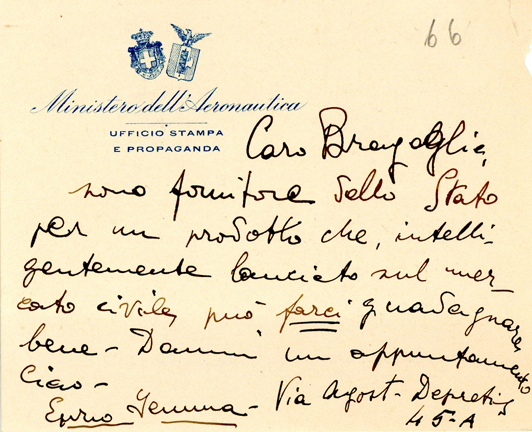 66
Ministero dell'Aeronautica
UFFICIO STAMPA
E PROPAGANDA
Caro Bragaglia,
sono fornitore dello Stato
per un prodotto che, intelli-
gentemente lanciato sul mer-
cato civile, può farci guadagnare
bene - Dammi un appuntamento
Ciao -
Via Agost - Depretis
45-A